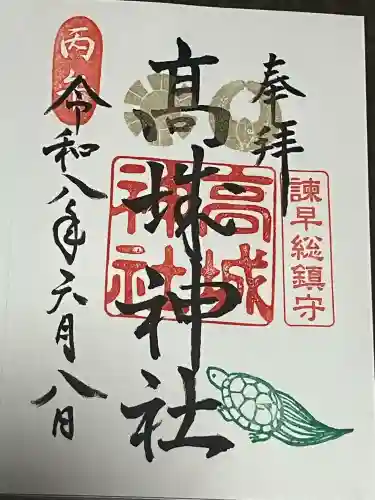 奉拝
諫早総鎮守
高城神社
高城神社
丙午
令和八年六月八日